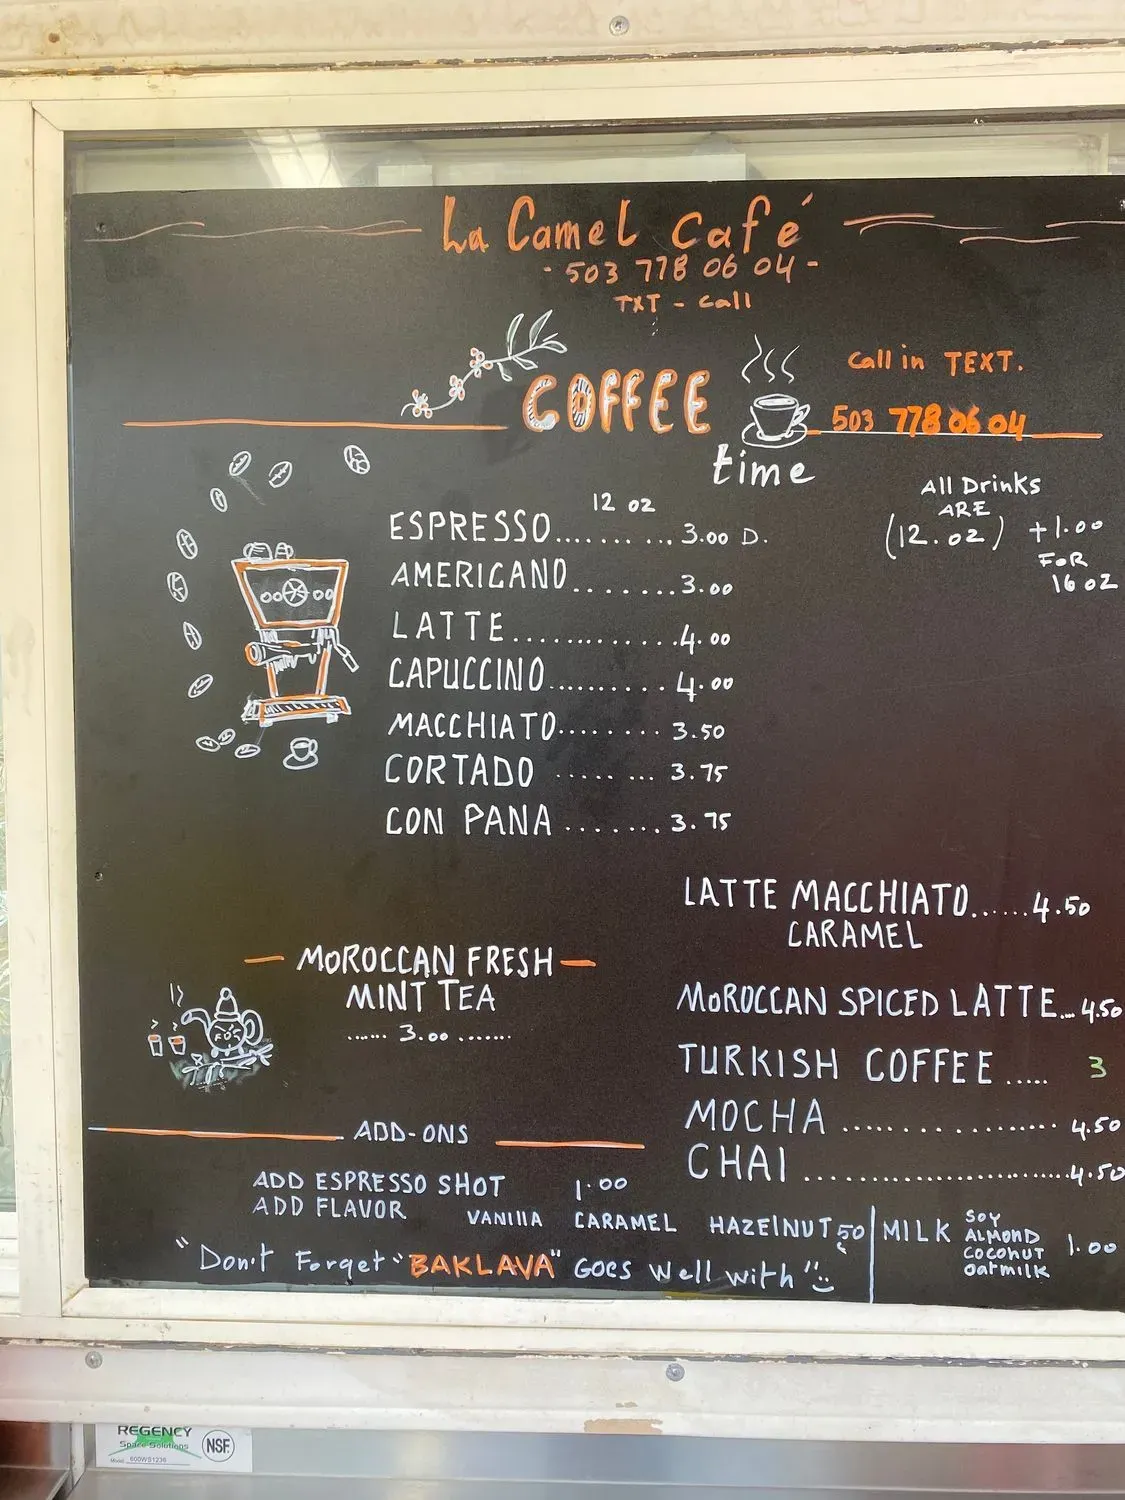 La Camel Café
- 503 778 06 04 -
TXT - Call
COFFEE
time
Call in TEXT.
503 778 06 04
All Drinks
ARE
(12.oz) +1.00
FOR
16 oz
12 oz
ESPRESSO.......... 3.00 D.
AMERICANO.......3.00
LATTE..............4.00
CAPUCCINO..........4.00
MACCHIATO........ 3.50
CORTADO ..... ... 3.75
CON PANA .......3.75
LATTE MACCHIATO......4.50
CARAMEL
MOROCCAN SPICED LATTE...4.50
TURKISH COFFEE ..... 3
MOCHA ................... 4.50
CHAI ..........................4.50
— MOROCCAN FRESH —
MINT TEA
...... 3.00 .......
ADD-ONS
ADD ESPRESSO SHOT 1.00
ADD FLAVOR VANILLA CARAMEL HAZELNUT 50 ¢
MILK SOY
ALMOND
COCONUT 1.00
oatmilk
"Don't Forget "BAKLAVA" GOES well with"
REGENCY
Space Solutions
Model: 600WS1236
NSF